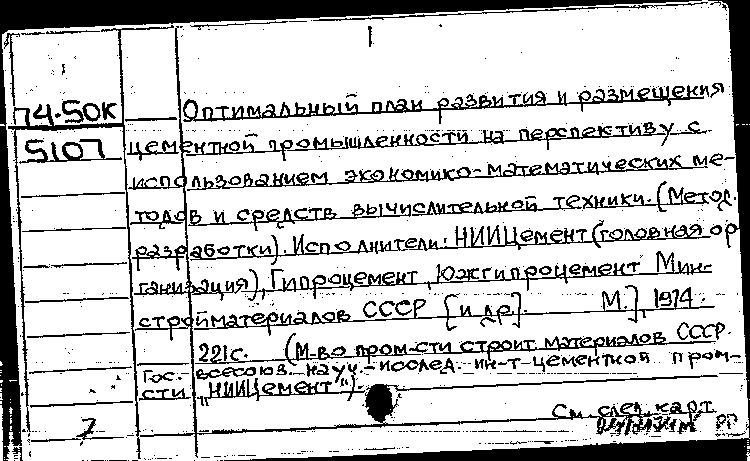 74-50к Оптимальный план развития и размещения
5107 цементной промышленности на перспективу с
использованием экономико-математических ме-
тодов и средств вычислительной техники. (Метод.
разработки). Исполнители: НИИЦемент (головная ор
ганизация), Гипроцемент, Южгипроцемент Мин-
стройматериалов СССР [и др]. М.], 1974.
221с. (М-во пром-сти строит. материалов СССР.
Гос. всесоюз. науч.-исслед. ин-т цементной пром-
сти „НИИЦемент").
См. след. карт.
7 РП